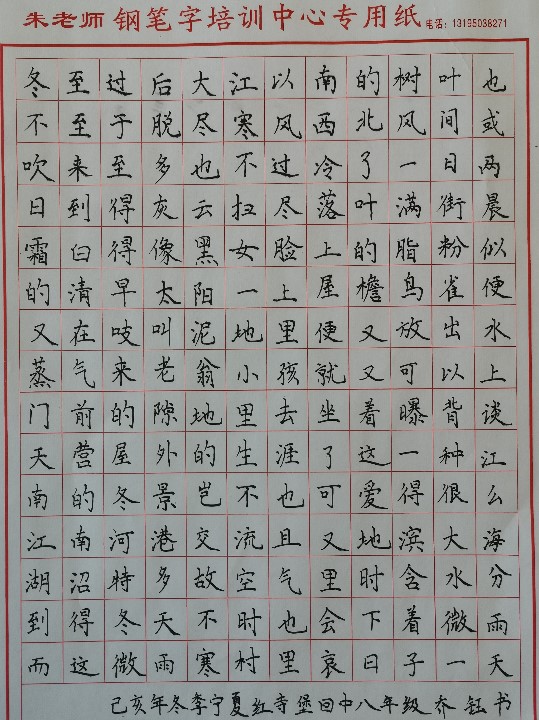 朱老师 钢笔字培训中心专用纸 电话：13195038271
冬至过后大江以南的树叶也
不至于脱尽寒风西北风间或
吹来至多也不过冷了一日两
日到得灰云扫尽落叶满街晨
霜白得像黑女脸上的脂粉似
的清早太阳一上屋檐鸟雀便
又在吱叫泥地里便又放出水
蒸气来老翁小孩就又可以上
门前的隙地里去坐着曝背谈
天营屋外的生涯了这一种江
南的冬景岂不也可爱得很么
江南河港交流且又地滨大海
湖沼特多故空气里时含水分
到得冬天不时也会下着微雨
而这微雨寒村里哀曰子一天
己亥年冬季宁夏红寺堡回中八年级乔钰书